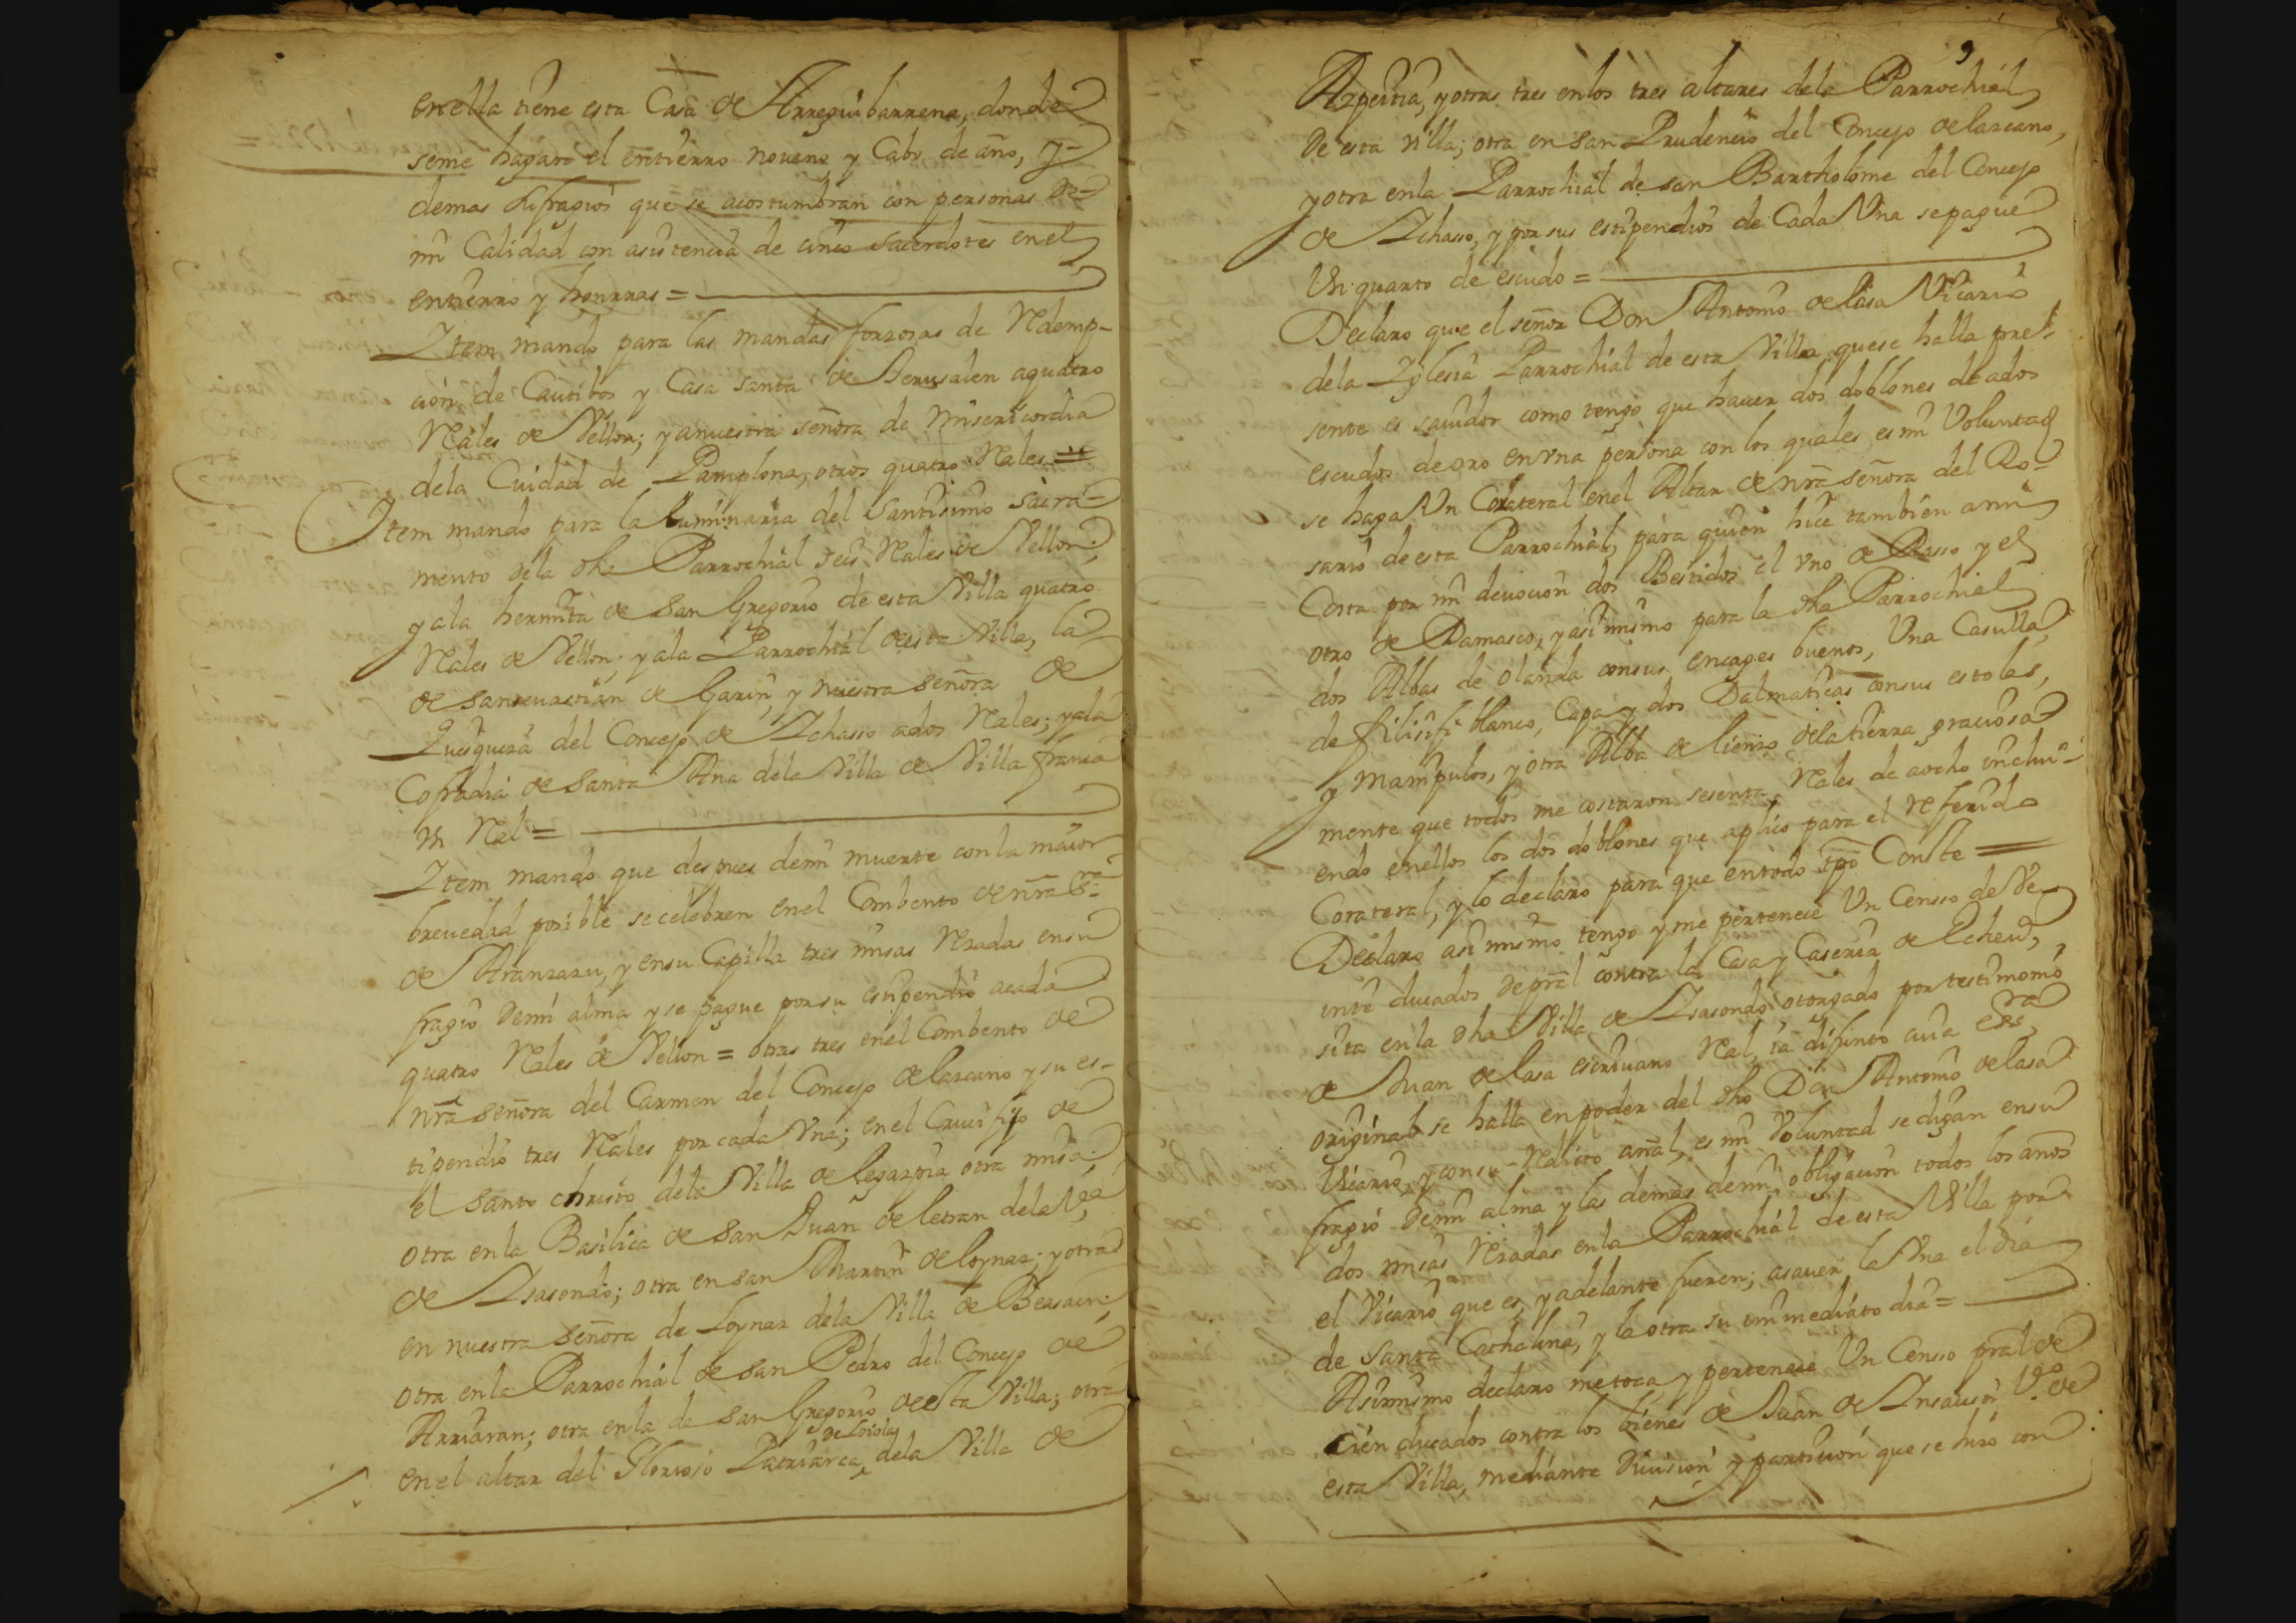 enella tiene esta Casa de Arreguibarrena, donde
seme hagan el entierro noveno y Cabo de año, y
demas sufragios que se acostumbran con personas de
mi Calidad con asistencia de cinco sacerdotes enel
entierro y honrras =
Item mando para las mandas forzosas de Redemp-
cion de Cautibos y Casa santa de Jerusalen aquatro
Reales de Vellon; y anuestra señora de Misericordia
dela Ciudad de Pamplona, otros quatro Reales =
Item mando para la luminaria del Santisimo sacra-
mento dela dha Parrochial seis Reales de Vellon;
y ala hermita de San Gregorio de esta Villa quatro
Reales de Vellon; y ala Parrochial de esta Villa, la
de sansevastian de Garin, y nuestra señora de
del Concejo de Ichasso ados Reales; y ala
Cofradia de santa Ana dela Villa de Villa franca
Un Real =
Item mando que despues demi muerte con la maior
brevedad posible se celebren enel Combento de nra Sra
de Aranzazu, y ensu Capilla tres misas Rezadas ensu
fragio demi alma y se pague por su estipendio acada
quatro Reales de Vellon = otras tres enel Combento de
nra señora del Carmen del Concejo de lazcano y su es-
tipendio tres Reales por cada Una; enel Crucifijo de
el santo christo dela Villa de legazpia otra misa;
otra enla Basilica de san Juan de letran dela Va
de Isasondo; otra en san Martin de loynaz; y otra
en nuestra señora de Loynaz dela Villa de Beasain;
otra enla Parrochial de san Pedro del Concejo de
Arriaran; otra enla de san Gregorio de esta Villa; otra
de Loiola
enel altar del Glorioso Patriarca dela Villa de
9
Azpeitia, y otras tres enlos tres altares dela Parrochial
de esta villa; otra en san Prudencio del Concejo de lazcano,
y otra enla Parrochial de san Bartholome del Concejo
de Ichasso, y por sus estipendios de Cada Una sepague
Un quarto de escudo =
Declaro que el señor Don Antonio de lasa Vicario
dela Iglesia Parrochial de esta Villa quese halla pre-
sente es savidor como tengo que haver dos doblones de ados
escudos de oro en vna persona con los quales es mi Voluntad
se haga Un Colateral enel Altar de nra señora del Ro-
sario de esta Parrochial, para quien hice tambien ami
Costa por mi devocion dos Bestidos el vno de Rasso y el
otro de Damasco, y asimismo para la dha Parrochial
dos Albas de olanda consus encages buenos, Una Casulla,
de blanco, Capa y dos Dalmaticas consus estolas,
y Manipulos, y otra Alba de lienzo dela tierra graciosa
mente que todos me costaron sesenta Reales de aocho inclui-
endo enellos los dos doblones que aplico para el referido
Corateral, y lo declaro para que entodo tpo Conste =
Declaro asimismo tengo y me pertenece Un Censo de Ve-
inte ducados de pral contra la Casa y Caseria de Echeve,
sita enla dha Villa de Isasondo otorgado por testimonio
de Juan de lasa escrivano Real, ia difunto cuia essra
original se halla en poder del dho Don Antonio de lasa
Vicario, y consu Redito anal, es mi Voluntad se digan ensu
fragio demi alma y las demas demi obligacion todos los años
dos misas Rezadas enla Parrochial de esta Villa por
el Vicario que es, y adelante fueren; asaver la Vna el dia
de Santa Cathalina, y la otra su immediato dia =
Asimismo declaro me toca y pertenece Un Censo pral de
cien ducados contra los bienes de Juan de Insausti Vo de
esta Villa, mediante division y particion que se hizo con